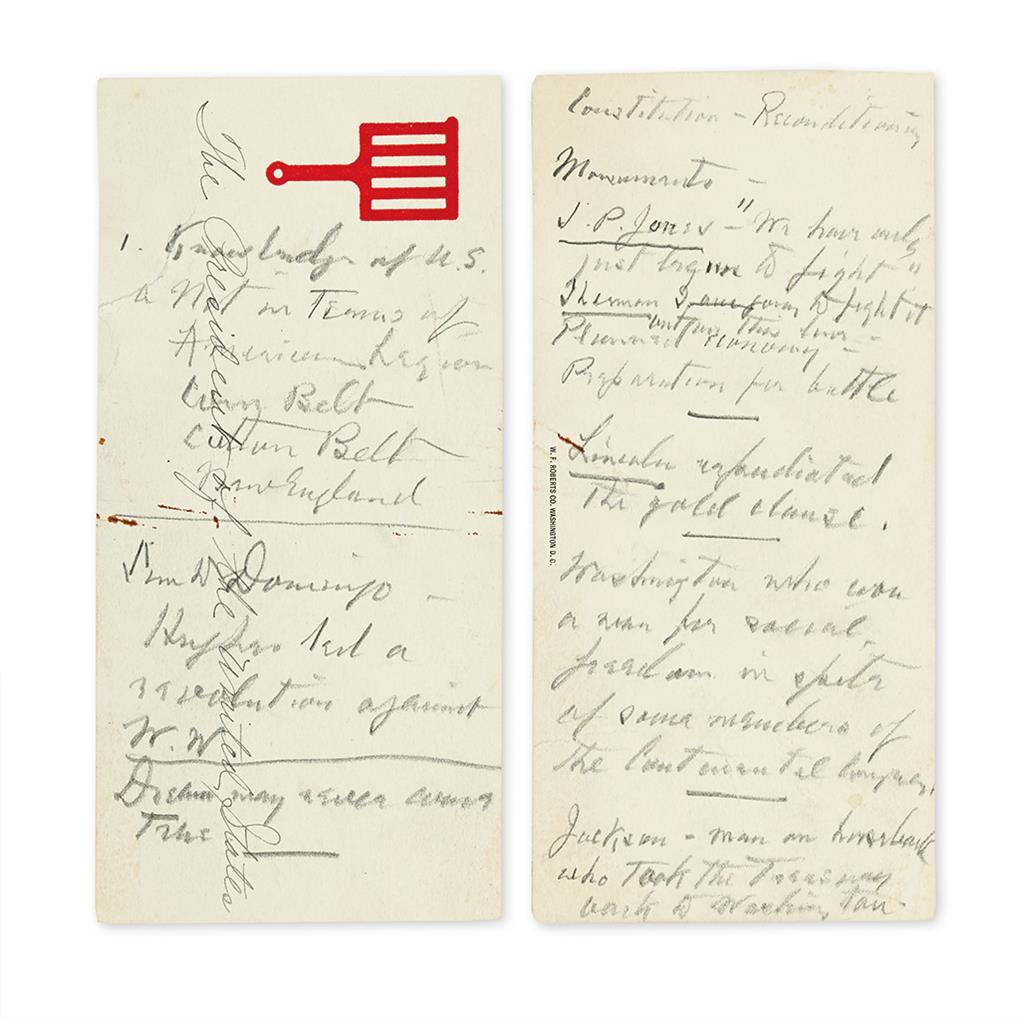 The President of the United States
1. Knowledge of U.S.
a Not in Terms of
American Legion
Corn Belt
Cotton Belt
New England
Domingo -
Hughes led a
revolution against
W. W.
Dream may never come
True
Constitution - Reconditioning
Monuments -
J. P. Jones - "We have only
just begun to fight"
Sherman I am going to fight it
out on this line -
Planned economy -
Preparation for battle
Lincoln repudiated
the gold clause.
W. F. ROBERTS CO. WASHINGTON D. C.
Washington who won
a war for social
freedom in spite
of some members of
the Continental Congress.
Jackson - man on horseback
who Took the Treasury
back to Washington -